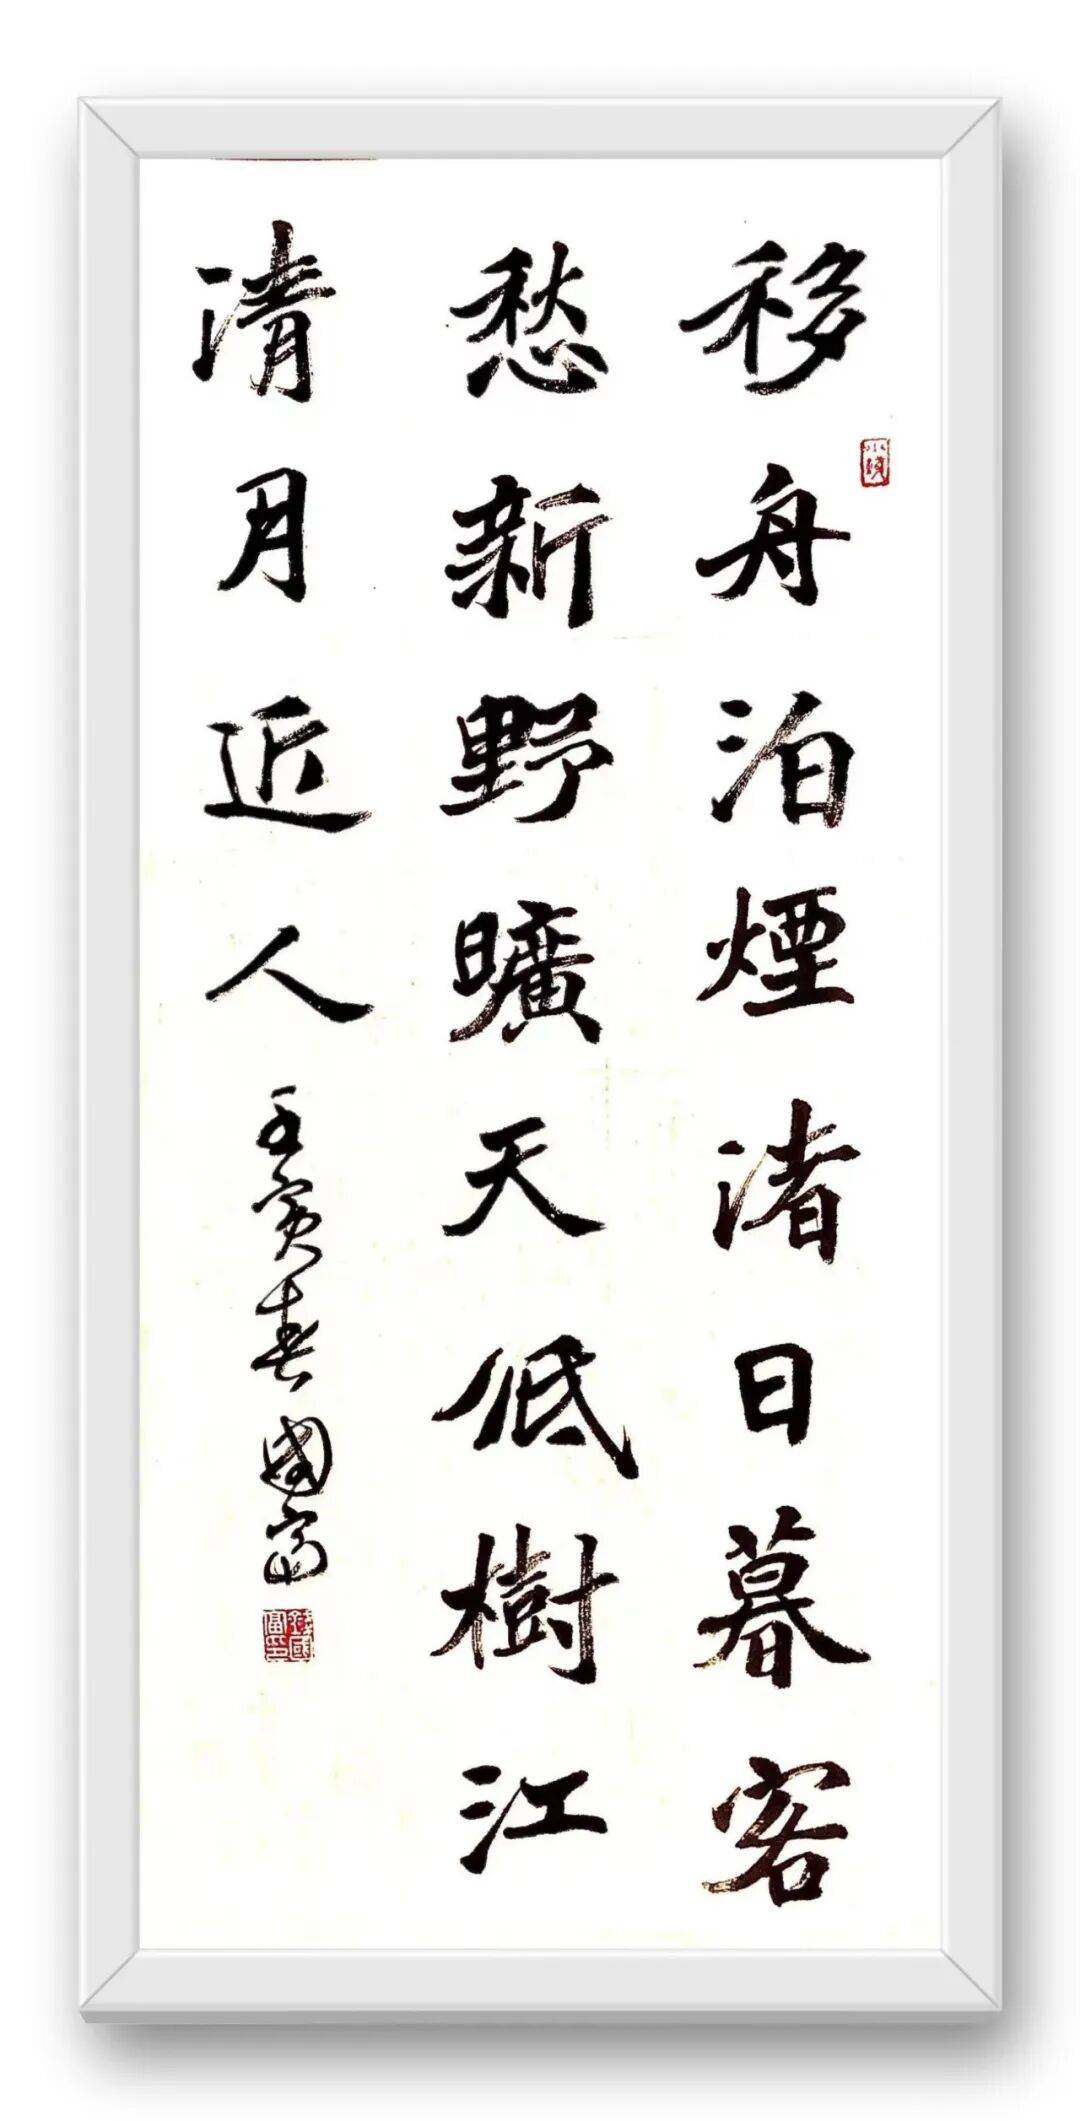 移舟泊煙渚日暮客
愁新野曠天低樹江
清月近人
壬寅春國富